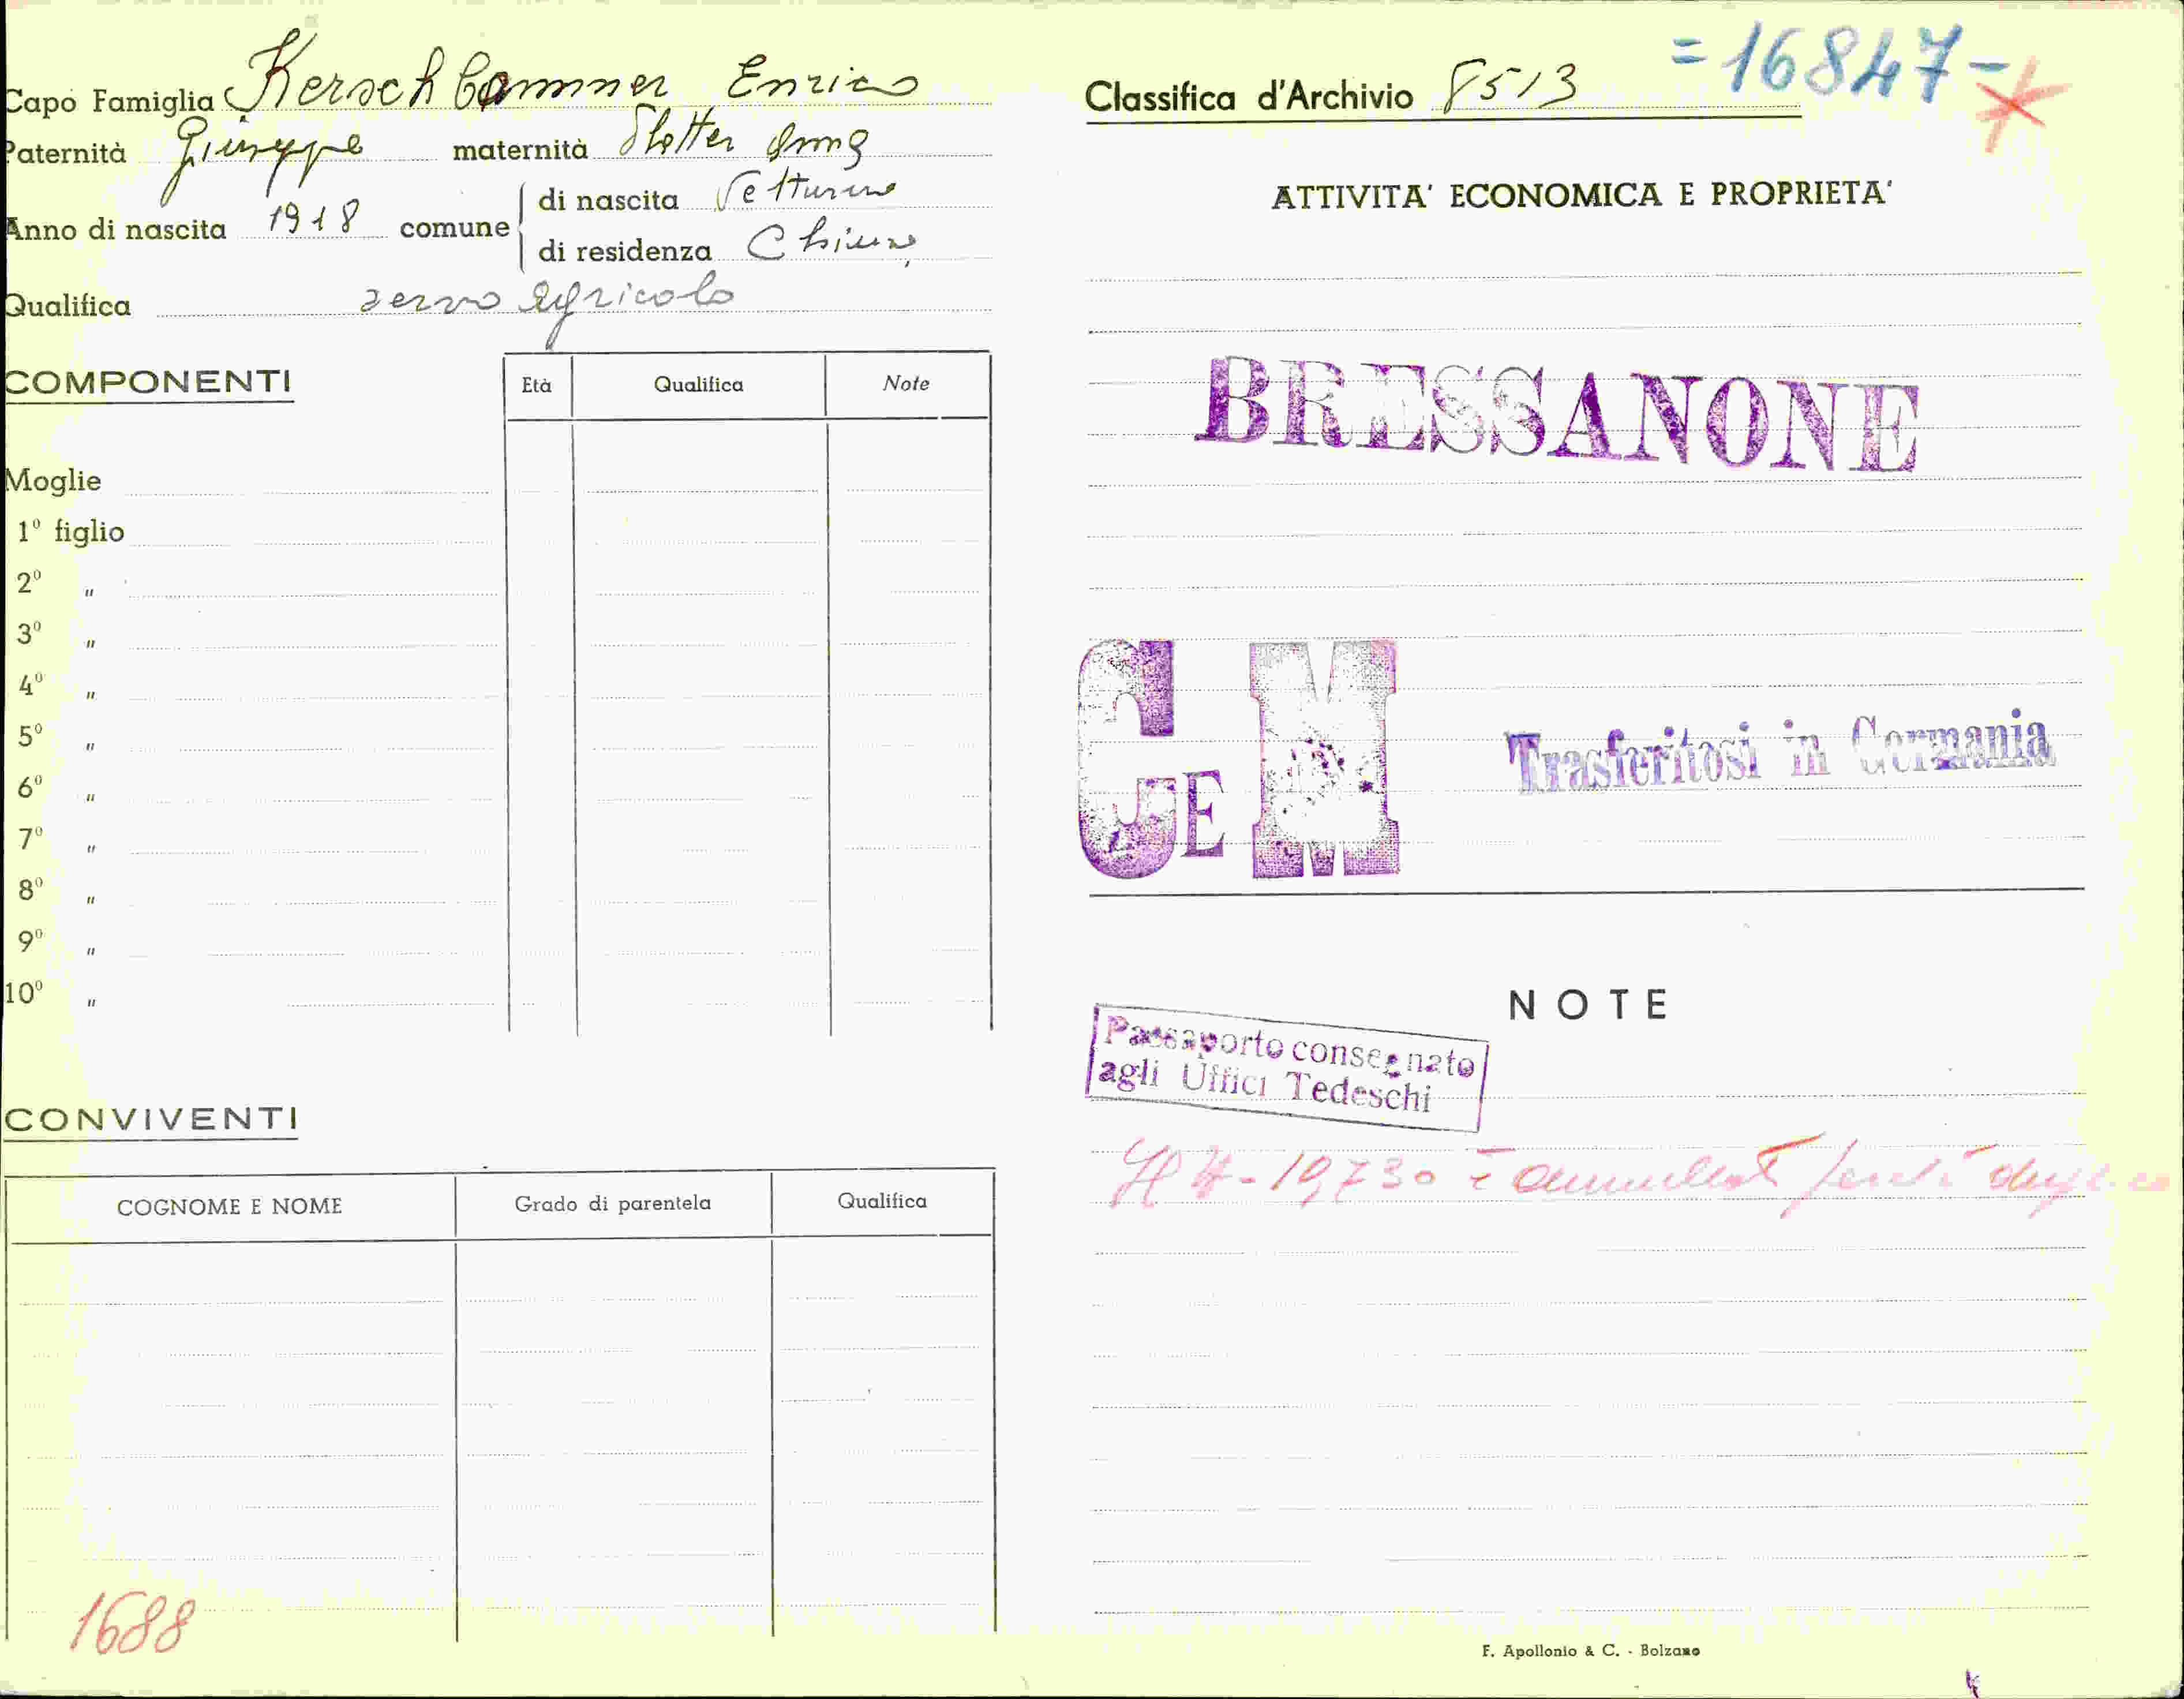 Capo Famiglia Kerschbammer Enrico
Paternità Giuseppe maternità Plotter Anna
Anno di nascita 1918 comune
di nascita Velturno
di residenza Chiusa
Qualifica servo agricolo
COMPONENTI
Età Qualifica Note
Moglie
1º figlio
2º "
3º "
4º "
5º "
6º "
7º "
8º "
9º "
10º "
CONVIVENTI
COGNOME E NOME Grado di parentela Qualifica
1688
=16847-
Classifica d'Archivio 8513
ATTIVITA' ECONOMICA E PROPRIETA'
BRESSANONE
CEM
Trasferitosi in Germania
NOTE
Passaporto consegnato
agli Uffici Tedeschi
19730
F. Apollonio & C. - Bolzano